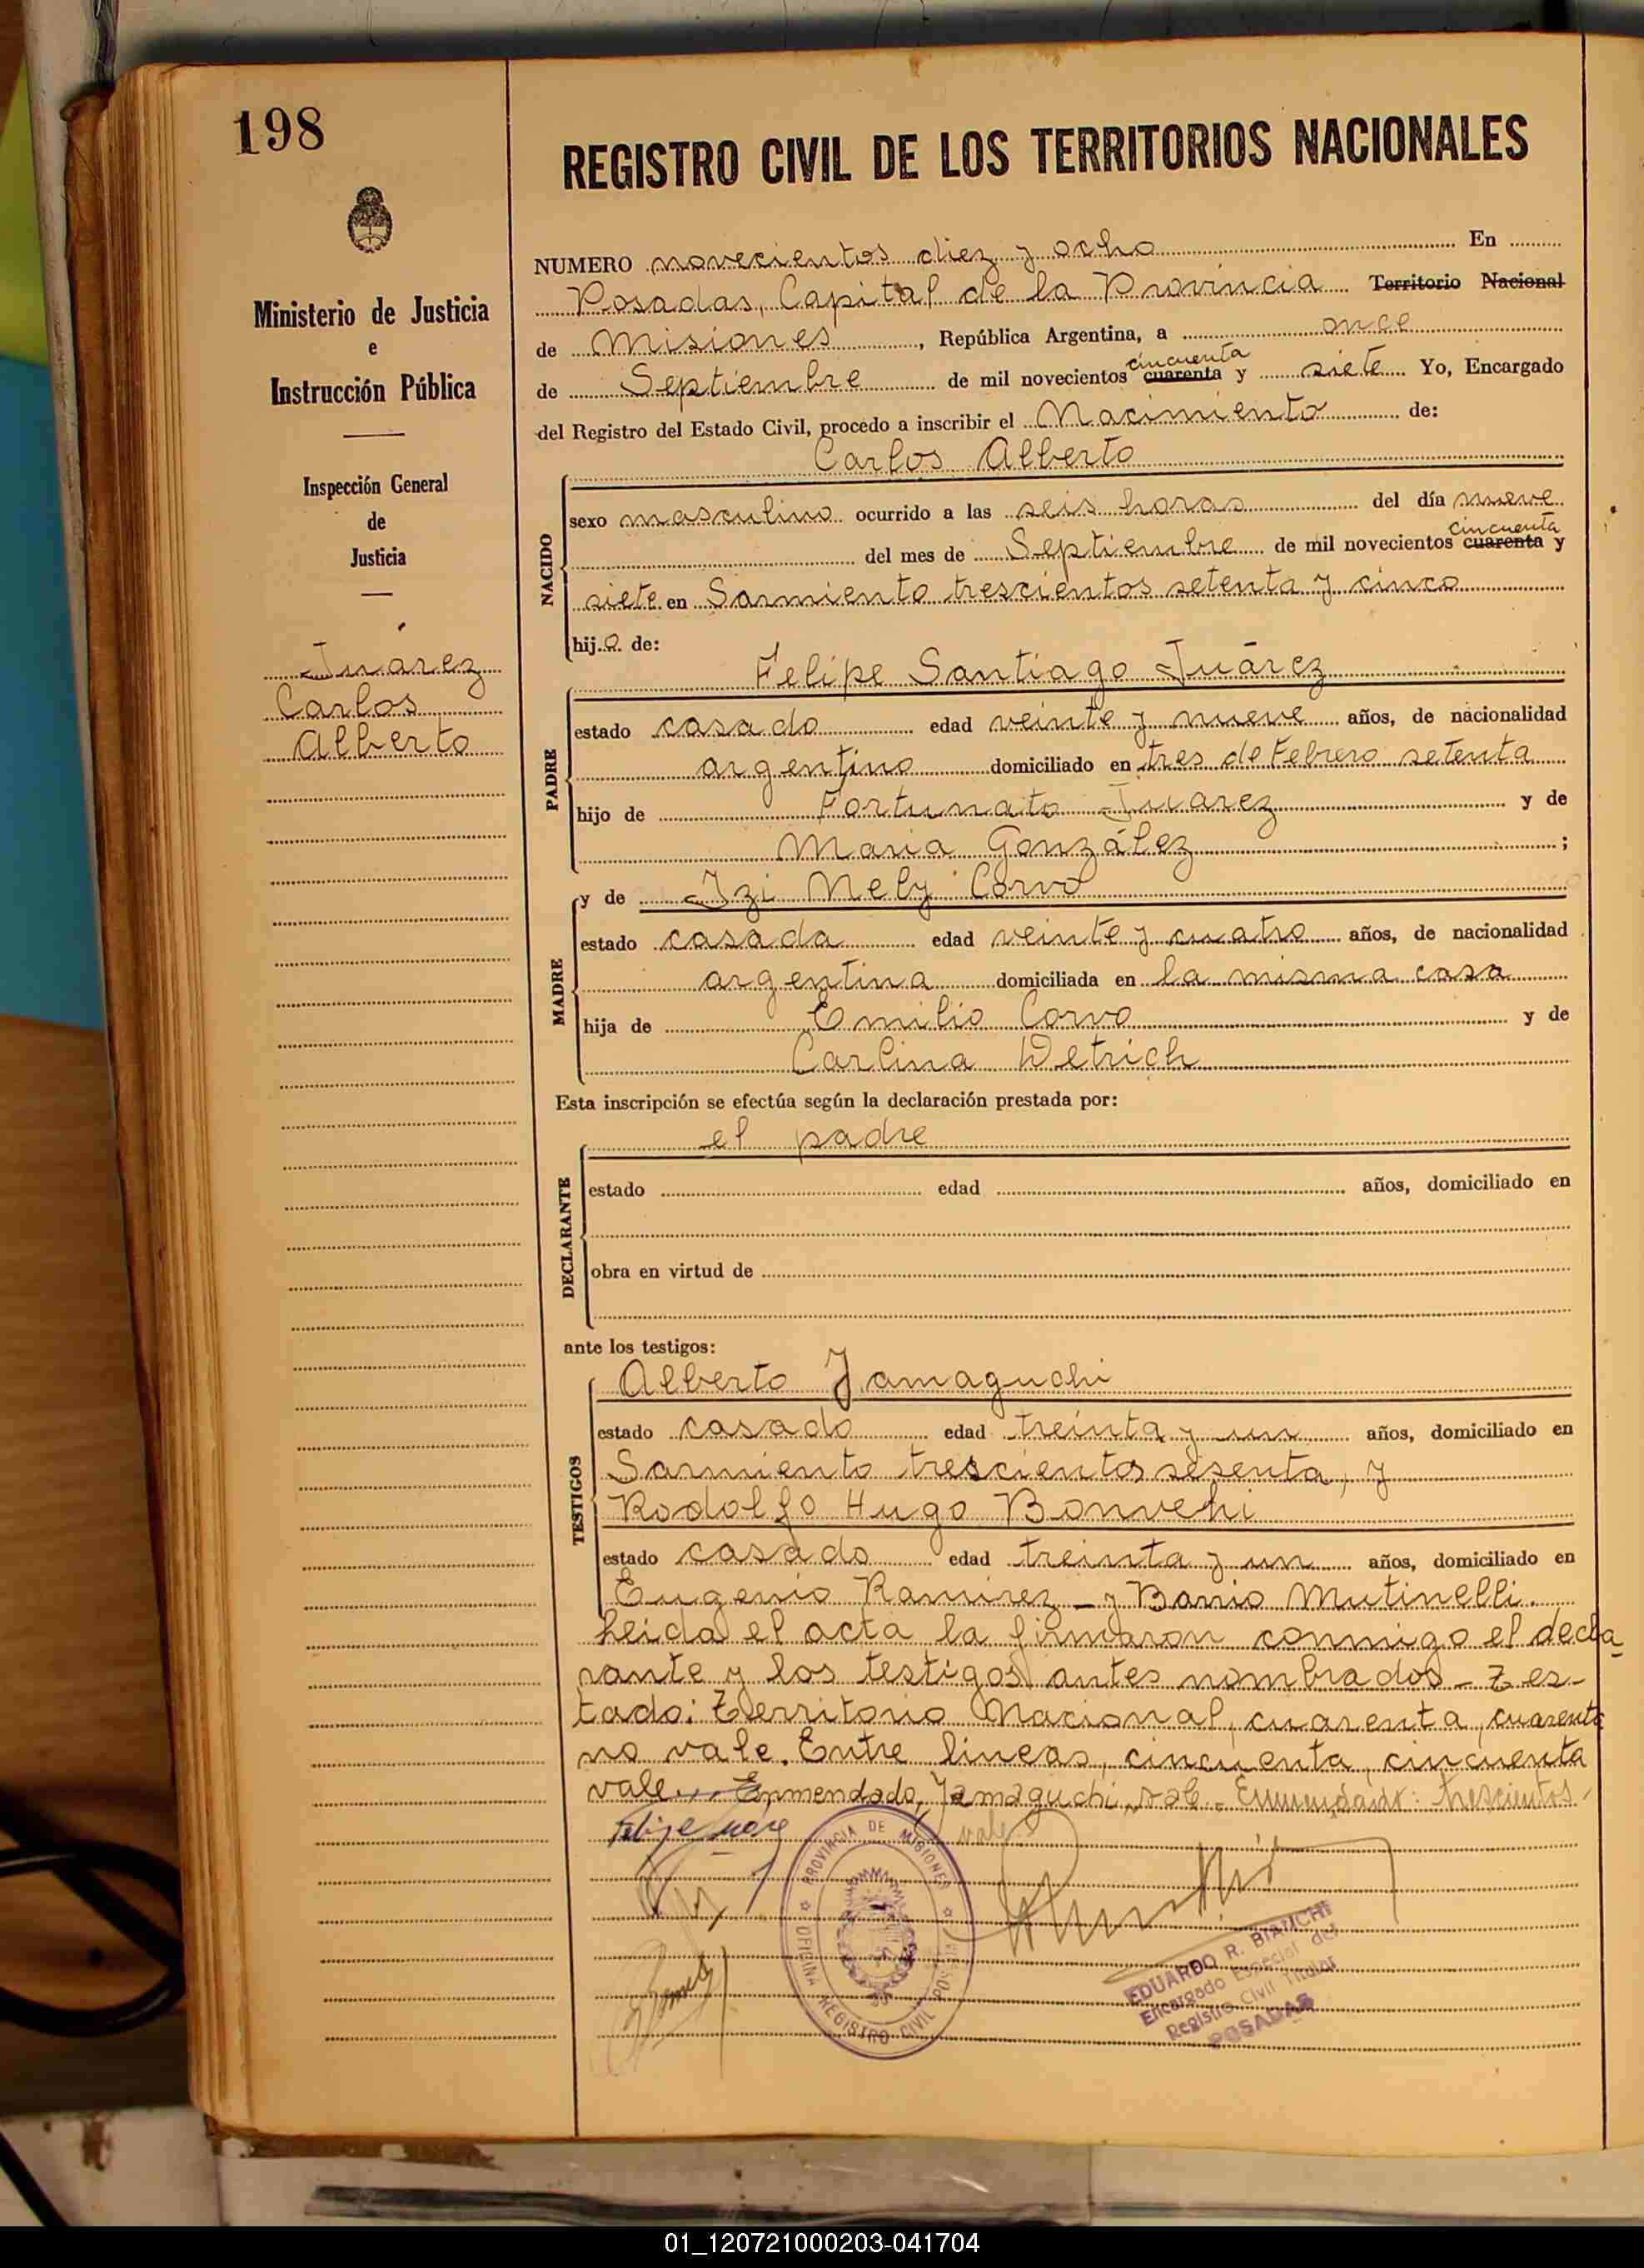 198
REGISTRO CIVIL DE LOS TERRITORIOS NACIONALES
Ministerio de Justicia
e
Instrucción Pública
Inspección General
de
Justicia
Juarez
Carlos
Alberto
NUMERO novecientos diez y ocho En
Posadas, Capital de la Provincia Territorio Nacional
de Misiones, República Argentina, a once
cincuenta
de Septiembre de mil novecientos cuarenta y siete Yo, Encargado
del Registro del Estado Civil, procedo a inscribir el Nacimiento de:
Carlos Alberto
NACIDO
sexo masculino ocurrido a las seis horas del día nueve
cincuenta
del mes de Septiembre de mil novecientos cuarenta y
siete en Sarmiento trescientos setenta y cinco
hijo de:
Felipe Santiago Juárez
PADRE
estado casado edad veinte y nueve años, de nacionalidad
argentino domiciliado en tres de Febrero setenta
hijo de Fortunato Juarez y de
Maria González;
y de Izi Nely Corvo
MADRE
estado casada edad veinte y cuatro años, de nacionalidad
argentina domiciliada en la misma casa
hija de Emilio Corvo y de
Carlina Detrich
Esta inscripción se efectúa según la declaración prestada por:
el padre
DECLARANTE
estado edad años, domiciliado en
obra en virtud de
ante los testigos:
Alberto Jamaguchi
TESTIGOS
estado casado edad treinta y un años, domiciliado en
Sarmiento trescientos sesenta, y
Rodolfo Hugo Bonvehi
estado casado edad treinta y un años, domiciliado en
Eugenio Ramirez - y Barrio Mutinelli.
Leida el acta la firmaron conmigo el decla
rante y los testigos antes nombrados - Tes-
tado: Territorio Nacional, cuarenta, cuarenta
no vale. Entre lineas, cincuenta, cincuenta
vale... Enmendado, Jamaguchi, vale - Enmendado: trescientos -
vale.
PROVINCIA DE MISIONES
OFICINA REGISTRO CIVIL POSADAS
EDUARDO R. BIANCHI
Encargado Especial del
Registro Civil Titular
POSADAS
01_120721000203-041704